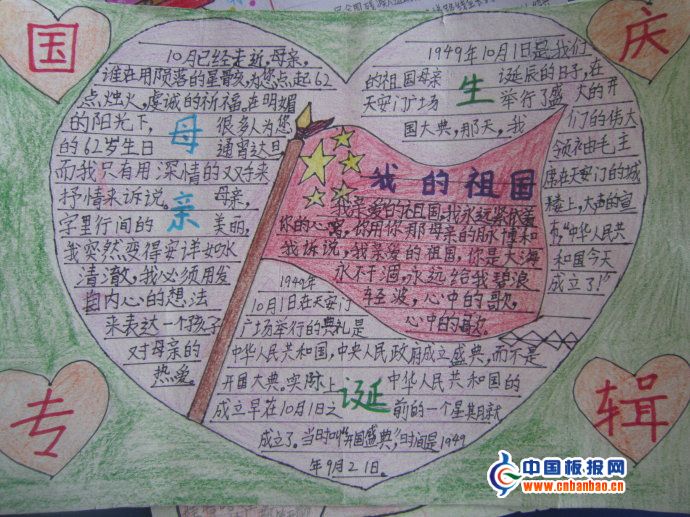 国
庆
专
辑
10月已经走近,母亲,
谁在用陨落的星骸,为您点起62
点烛火,虔诚的祈福。在明媚
的阳光下, 很多人为您
的62岁生日 通宵达旦
而我只有用深情的双手来
抒情来诉说。母亲,
字里行间的 美丽,
我突然变得安详如水
清澈,我必须用发
自内心的想法
来表达一个孩子
对母亲的
热爱。
母
亲
1949年10月1日是我们
的祖国母亲 诞辰的日子,在
天安门广场 举行了盛大的开
国大典,那天,我
们的伟大
领袖毛主
席在天安门的城
楼上,大声的宣
布,“中华人民共
和国今天
成立了!”
生
我的祖国
我亲爱的祖国,我永远紧依着
你的心窝,你用你那母亲的脉搏和
我诉说,我亲爱的祖国,你是大海
永不干涸,永远给我碧浪
轻波,心中的歌,
心中的歌
1949年
10月1日在天安门
广场举行的典礼是
中华人民共和国,中央人民政府成立盛典,而不是
开国大典。实际上 中华人民共和国的
成立早在10月1日之 前的一个星期就
成立了。当时叫“开国盛典”,时间是1949
年9月21日。
诞
中国板报网
www.cnbanbao.cn